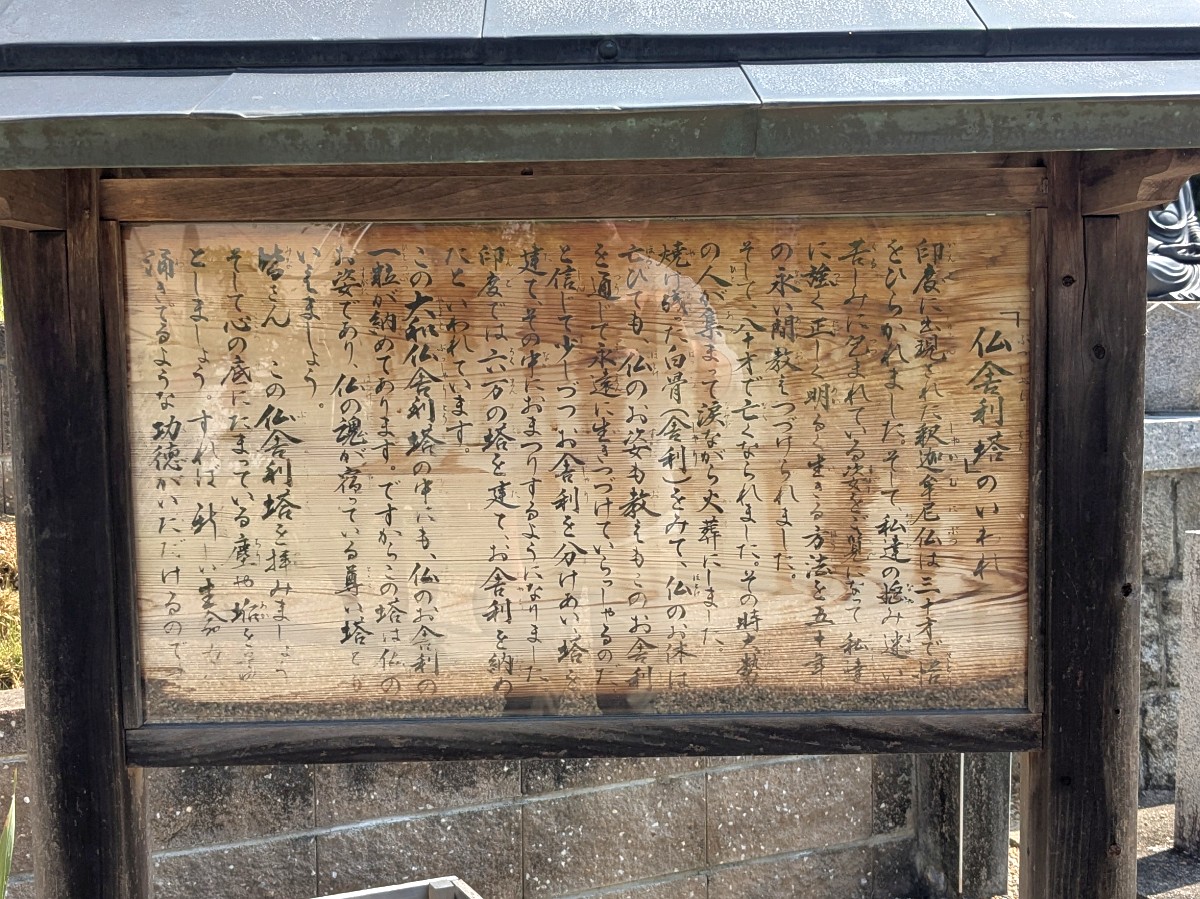 「仏舎利塔」のいわれ
印度に出現された釈迦牟尼仏は三十才で悟
をひらかれました。そして、私達の悩み迷い
苦しみに包まれている姿をご覧になって私達
に強く正しく明るく生きる方法を五十年
の永い間教えつづけられました。
そして、八十才で亡くなられました。その時大勢
の人が集まって涙ながら火葬にしました。
焼け残った白骨(舎利)をみて、仏のお体は
亡びても、仏のお姿も教えもこのお舎利
を通じて永遠に生きつづけていらっしゃるのだ
と信じて少しづつお舎利を分けあい塔を
建て、その中におまつりするようになりました
印度では六万の塔を建て、お舎利を納め
たと いわれています。
この大和仏舎利塔の中にも、仏のお舎利の
一粒が納めてあります。ですからこの塔は仏の
お姿であり、仏の魂が宿っている尊い塔と
いえましょう。
皆さん この仏舎利塔を拝みましょう
そして心の底にたまっている塵や垢を
としましょう。すれば新しい
涌きでるような功徳がいただけるのです